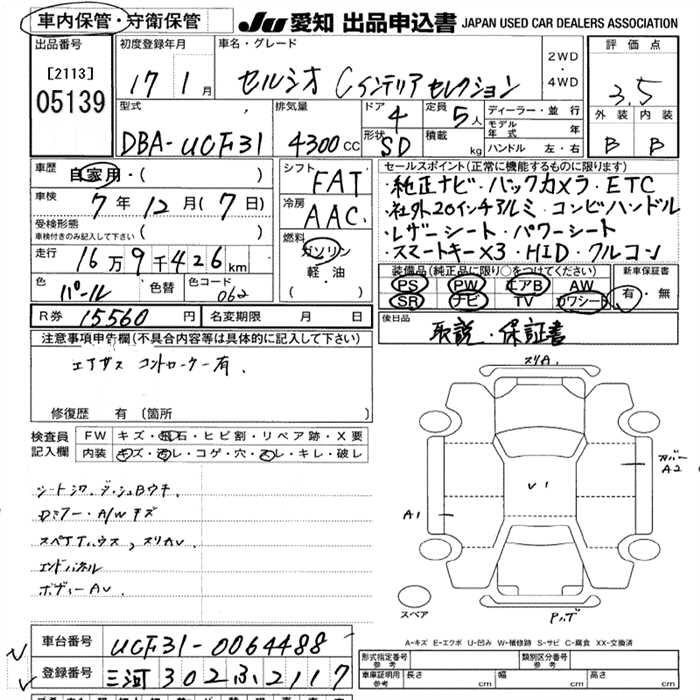 車内保管・守衛保管
JU 愛知 出品申込書 JAPAN USED CAR DEALERS ASSOCIATION
出品番号
[2113]
05139
初度登録年月
17 1月
車名・グレード
セルシオ Cインテリアセレクション
2WD
・
4WD
評価点
3.5
外装 内装
B B
型式
DBA-UCF31
排気量
4300cc
ドア
4
定員
5人
形状
SD
積載
kg
ディーラー・並行
モデル年式 年
ハンドル 左・右
車歴
自家用・( )
車検
7年12月(7日)
受検形態
車検付きのみ記入して下さい ( )
走行
16万9千426km
色
パール
色替
色コード
062
シフト
FAT
冷房
AAC
燃料
ガソリン
軽・油
( )
セールスポイント(正常に機能するものに限ります)
・純正ナビ・バックカメラ・ETC
・社外20インチアルミ・コンビハンドル
・レザーシート・パワーシート
・スマートキー×3・HID・クルコン
装備品(純正品に限り○をつけてください)
PS PW エアB AW
SR ナビ TV カワシート
新車保証書
有・無
R券 15560円 名変期限 月 日
後日品
取説・保証書
注意事項申告欄(不具合内容等は具体的に記入して下さい)
エアサス コントローラー有.
修復歴 有(箇所
検査員
記入欄
FW キズ・飛石・ヒビ割・リペア跡・X要
内装 キズ・汚レ・コゲ・穴・スレ・キレ・破レ
シートシワ・
Dミラー・A/Wキズ
スペアTハウス,スリカV
エンドパネル
ボディーAV
スリA
カバー
A2
V1
A1
スペア
A=キズ E=エクボ U=凹み W=補修跡 S=サビ C=腐食 XX=交換済
車台番号 UCF31-0064488
登録番号 三河302ふ2117
形式指定番号
参考
類別区分番号
参考
車庫証明用
参考
長さ cm 幅 cm 高さ cm